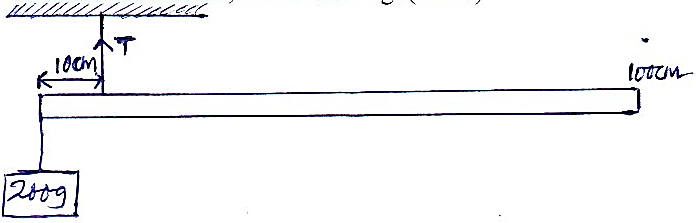 T
10cm
100cm
200g